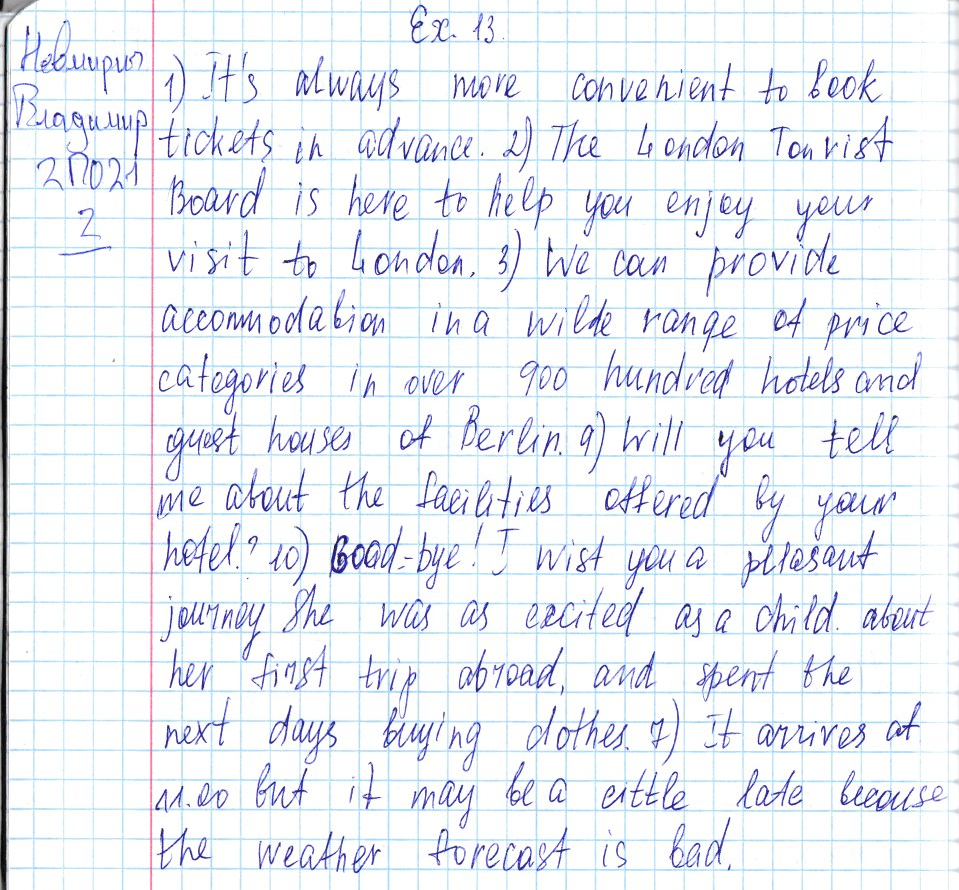 Ex. 13.
Невмирич
Владимир
2ПО21
2
1) It's always more convenient to book
tickets in advance. 2) The London Tourist
Board is here to help you enjoy your
visit to London. 3) We can provide
accommodation in a wilde range of price
categories in over 900 hundred hotels and
guest houses of Berlin. 9) Will you tell
me about the facilities offered by your
hotel? 10) Good-bye! I wist you a plesant
journey She was as excited as a child. about
her first trip abroad, and spent the
next days buying clothes. 7) It arrives at
11.00 but it may be a cittle late because
the weather forecast is bad.